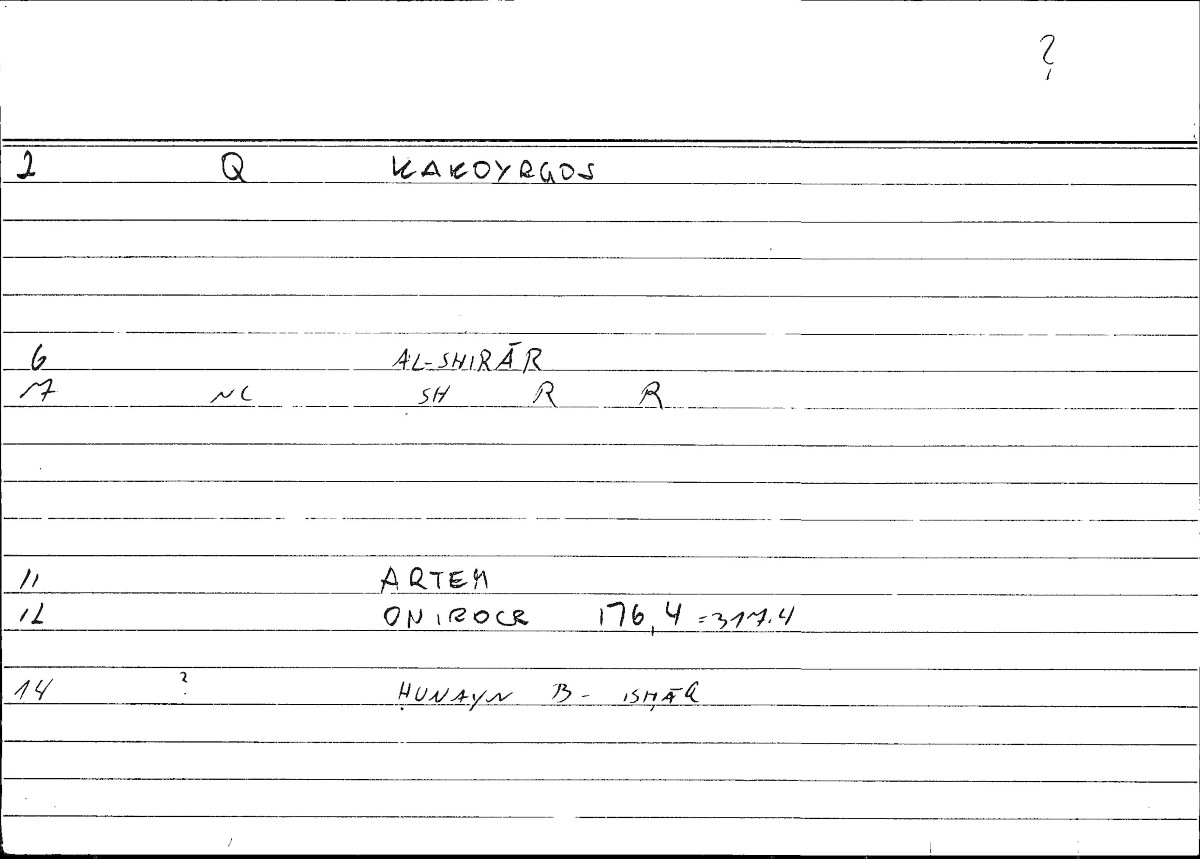 ?
2 Q KAKOYRGOS
6 AL-SHIRĀR
7 NC SH R R
11 ARTEM
12 ONIROCR 176,4 =317.4
14 ? ḤUNAYN B- ISḤĀQ